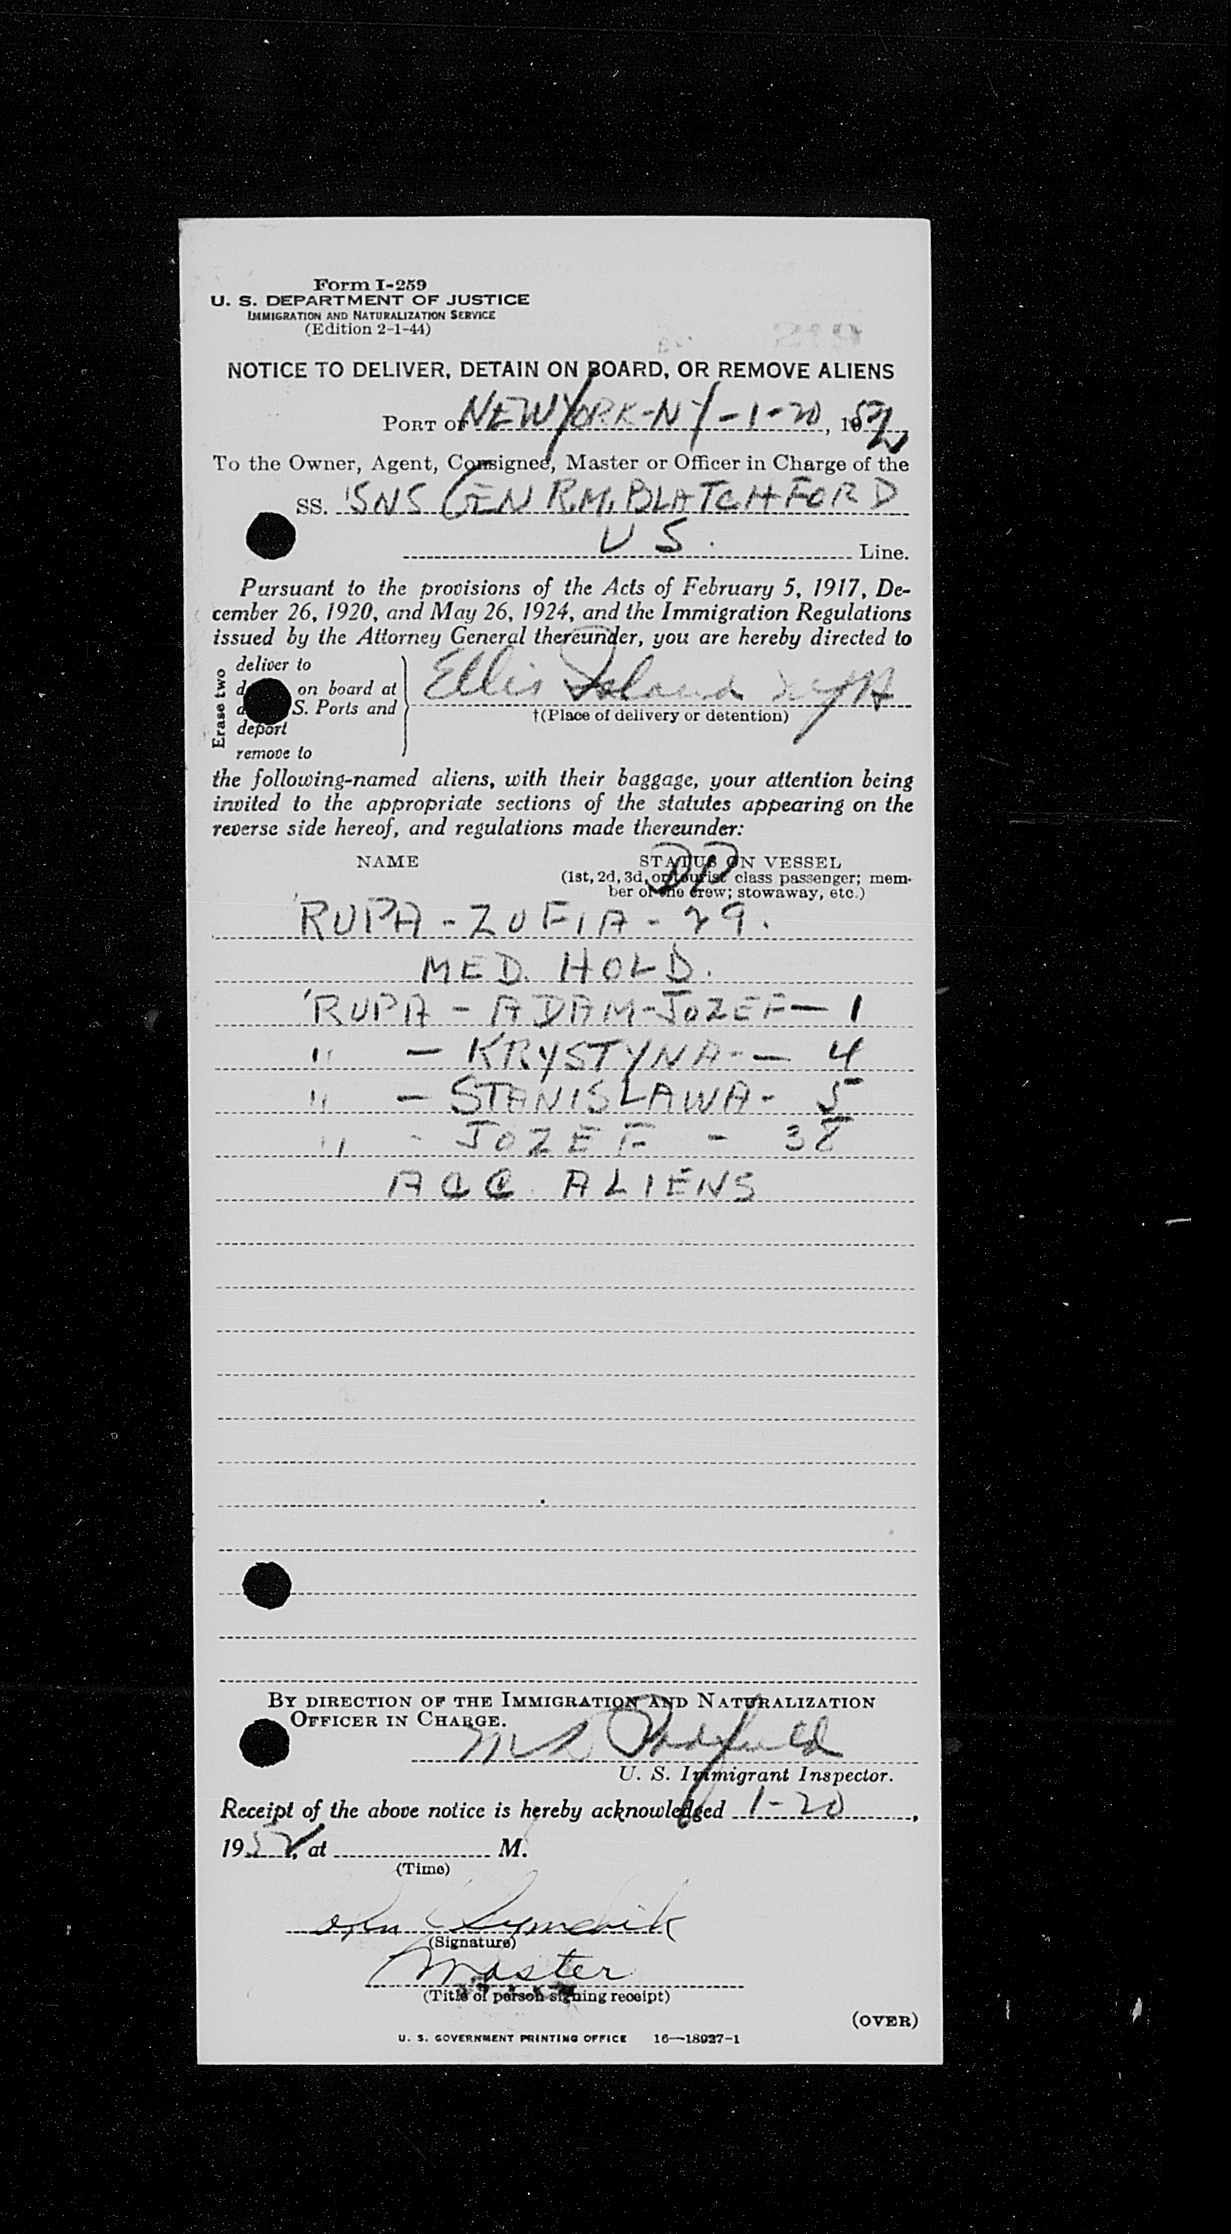 Form I-259
U. S. DEPARTMENT OF JUSTICE
IMMIGRATION AND NATURALIZATION SERVICE
(Edition 2-1-44)
NOTICE TO DELIVER, DETAIN ON BOARD, OR REMOVE ALIENS
PORT OF NEW YORK-NY-1-20, 1952
To the Owner, Agent, Consignee, Master or Officer in Charge of the
SS. 'SNS GEN R.M. BLATCHFORD
US. Line.
Pursuant to the provisions of the Acts of February 5, 1917, De-
cember 26, 1920, and May 26, 1924, and the Immigration Regulations
issued by the Attorney General thereunder, you are hereby directed to
Erase two
deliver to
on board at
S. Ports and
deport
remove to
Ellis Island
†(Place of delivery or detention)
the following-named aliens, with their baggage, your attention being
invited to the appropriate sections of the statutes appearing on the
reverse side hereof, and regulations made thereunder:
NAME STATUS ON VESSEL
(1st, 2d, 3d, or tourist class passenger; mem-
ber of the crew; stowaway, etc.)
DP
'RUPA - ZOFIA - 29.
MED. HOLD.
'RUPA - ADAM-JOZEF - 1
" - KRYSTYNA - - 4
" - STANISLAWA - 5
" - JOZEF - 38
ACC. ALIENS
BY DIRECTION OF THE IMMIGRATION AND NATURALIZATION
OFFICER IN CHARGE.
U. S. Immigrant Inspector.
Receipt of the above notice is hereby acknowledged 1-20,
1952, at M.
(Time)
(Signature)
Master
(Title of person signing receipt)
(OVER)
U. S. GOVERNMENT PRINTING OFFICE 16—18927-1